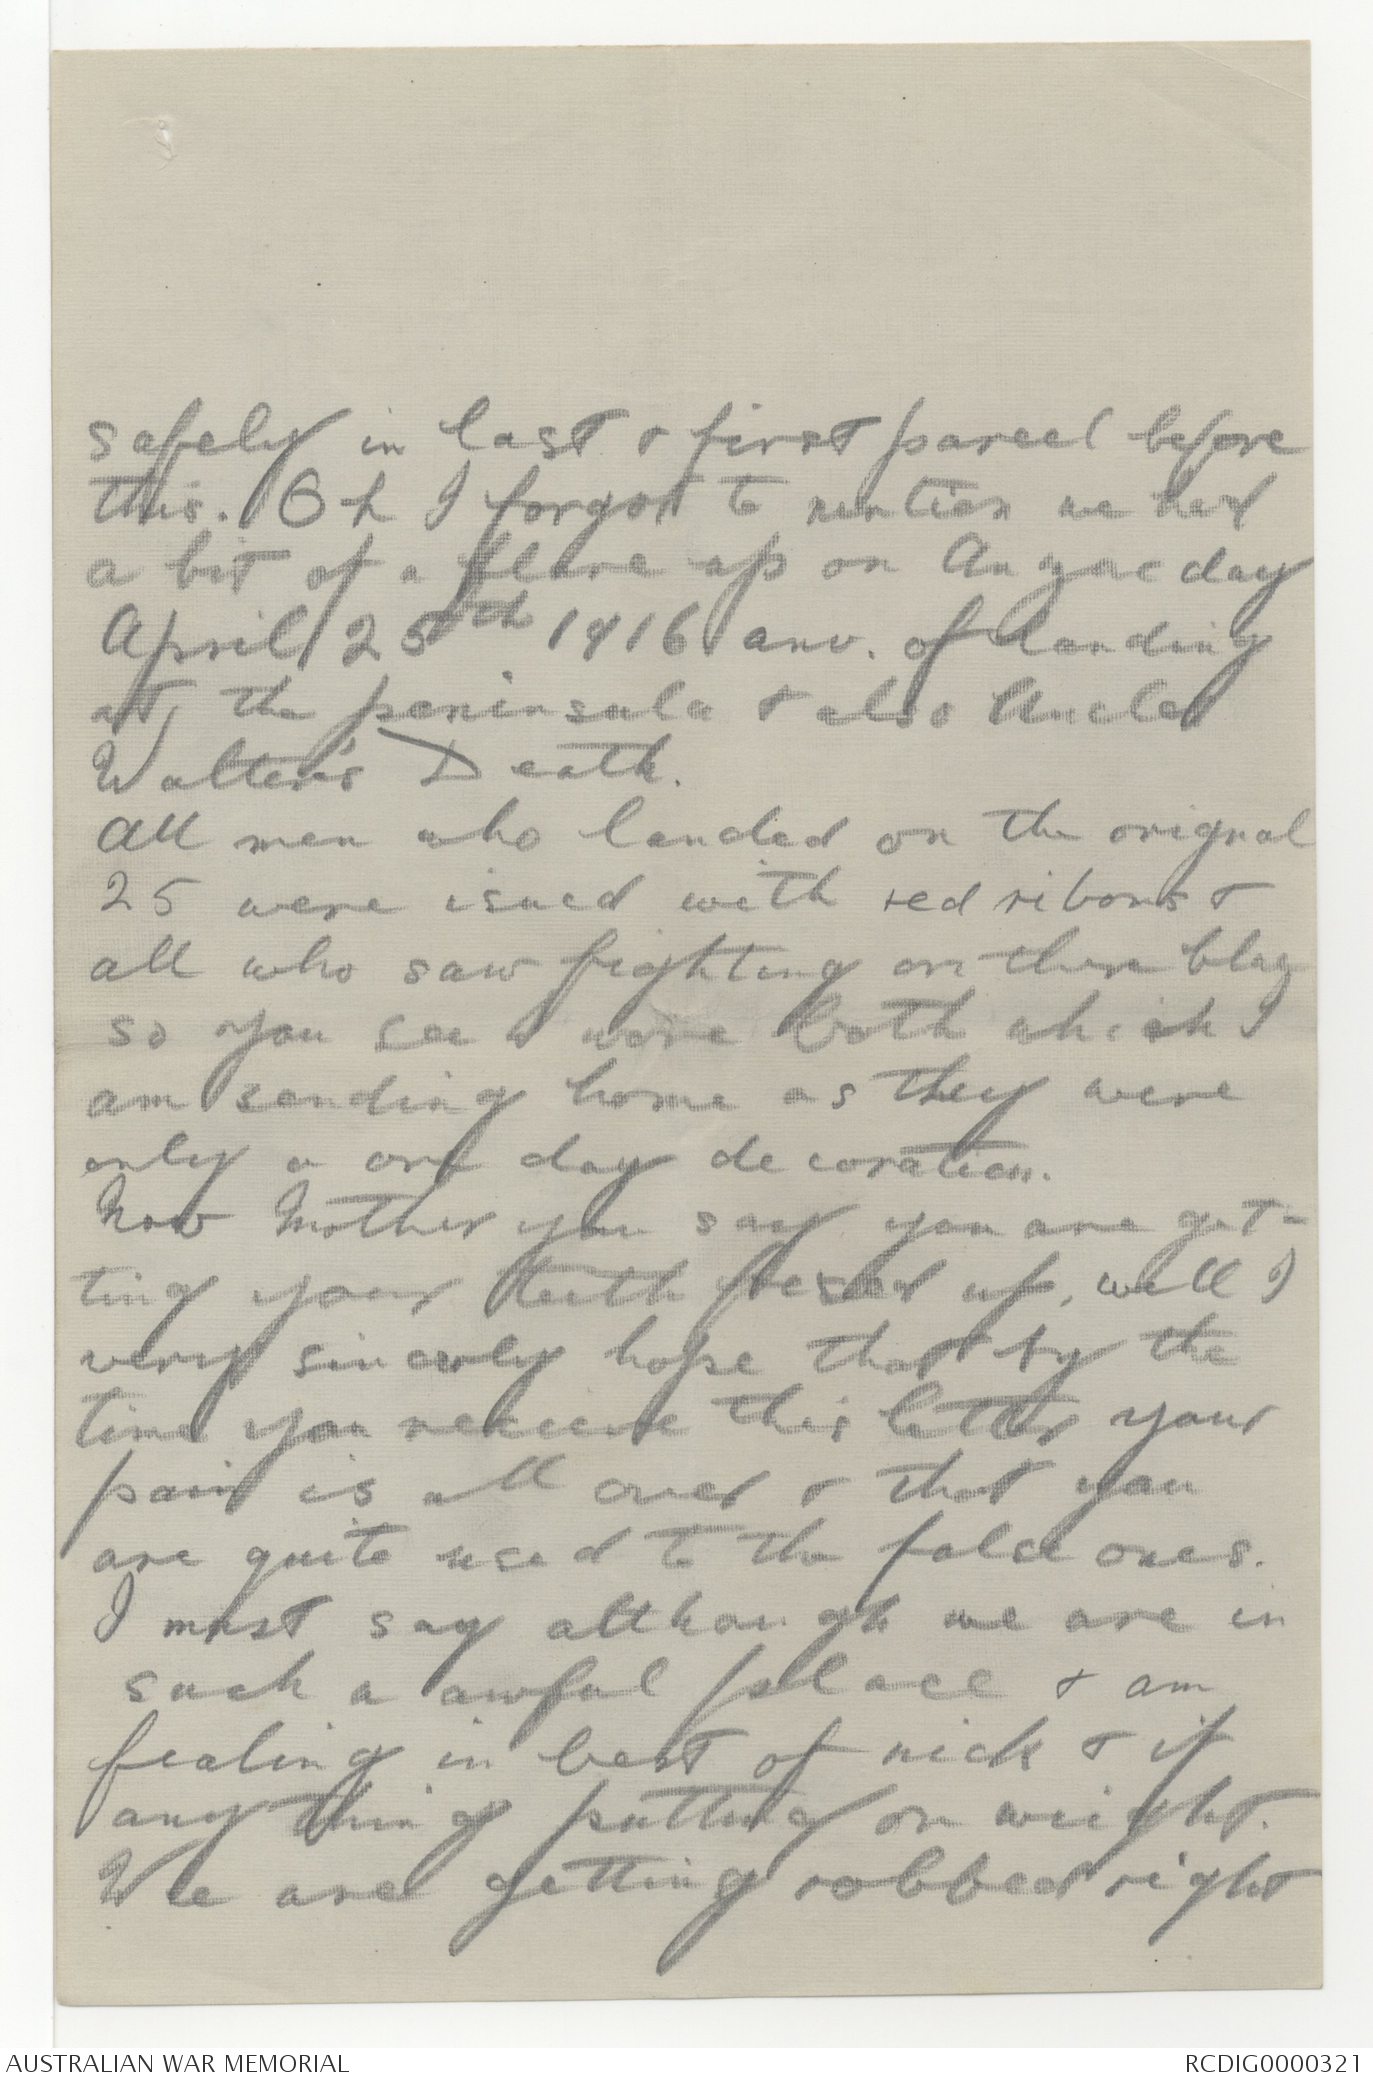 safely in last & first parcel before
this. Oh I forgot to mention we had
a bit of a flare up on Anzac day
April 25th 1916 anv. of landing
at, the peninsula & also Uncle
Walter's Death.
All men who landed on the orignal
25 were isued with red ribons &
all who saw fighting on there blag
so you see I wore both which I
am sending home as they were
only a one day decoration.
Now Mother you say you are get-
ting your teeth fixed up, well I
very sincerly hope that by the
time you receive this letter your
pain is all over & that you
are quite used to the false ones.
I must say although we are in
such a awful place & am
fealing in best of nick & if
anything putting on weight.
We are getting robbed right
AUSTRALIAN WAR MEMORIAL
RCDIG0000321